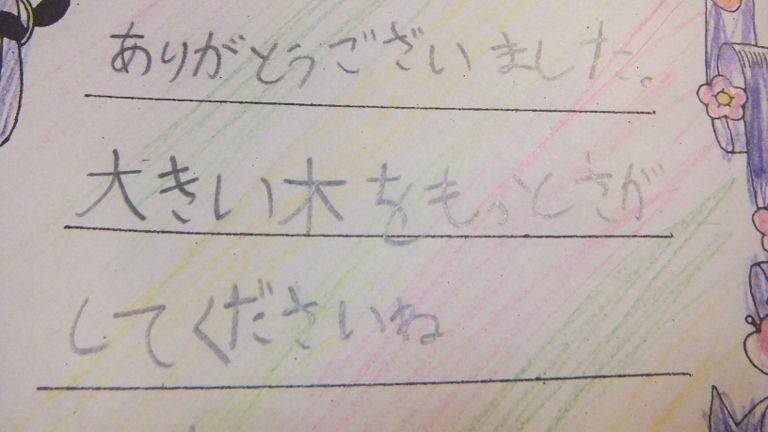 ありがとうございました。
大きい木をもっとさが
してくださいね